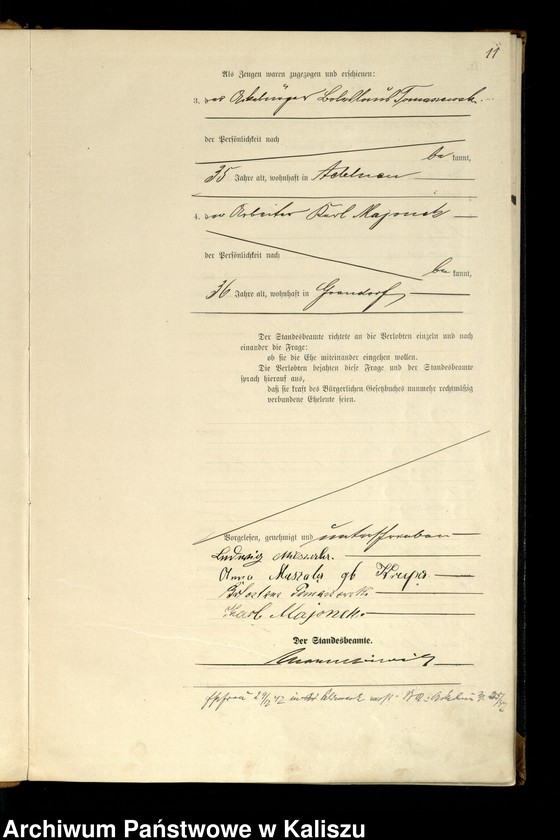 11
Als Zeugen waren zugezogen und erschienen:
3. der Ackerbürger Boleslaus Tomaszewsk
der Persönlichkeit nach
be kannt,
35 Jahre alt, wohnhaft in Adelnau
4. der Arbeiter Karl Majonek
der Persönlichkeit nach
be kannt,
36 Jahre alt, wohnhaft in Grandorf
Der Standesbeamte richtete an die Verlobten einzeln und nach
einander die Frage:
ob sie die Ehe miteinander eingehen wollen.
Die Verlobten bejahten diese Frage und der Standesbeamte
sprach hierauf aus,
daß sie kraft des Bürgerlichen Gesetzbuches nunmehr rechtmäßig
verbundene Eheleute seien.
Vorgelesen, genehmigt und unterschrieben
Ludwig
Anna Muszala gb Krupa
Tomaszewski
Karl Majonek
Der Standesbeamte.
Archiwum Państwowe w Kaliszu